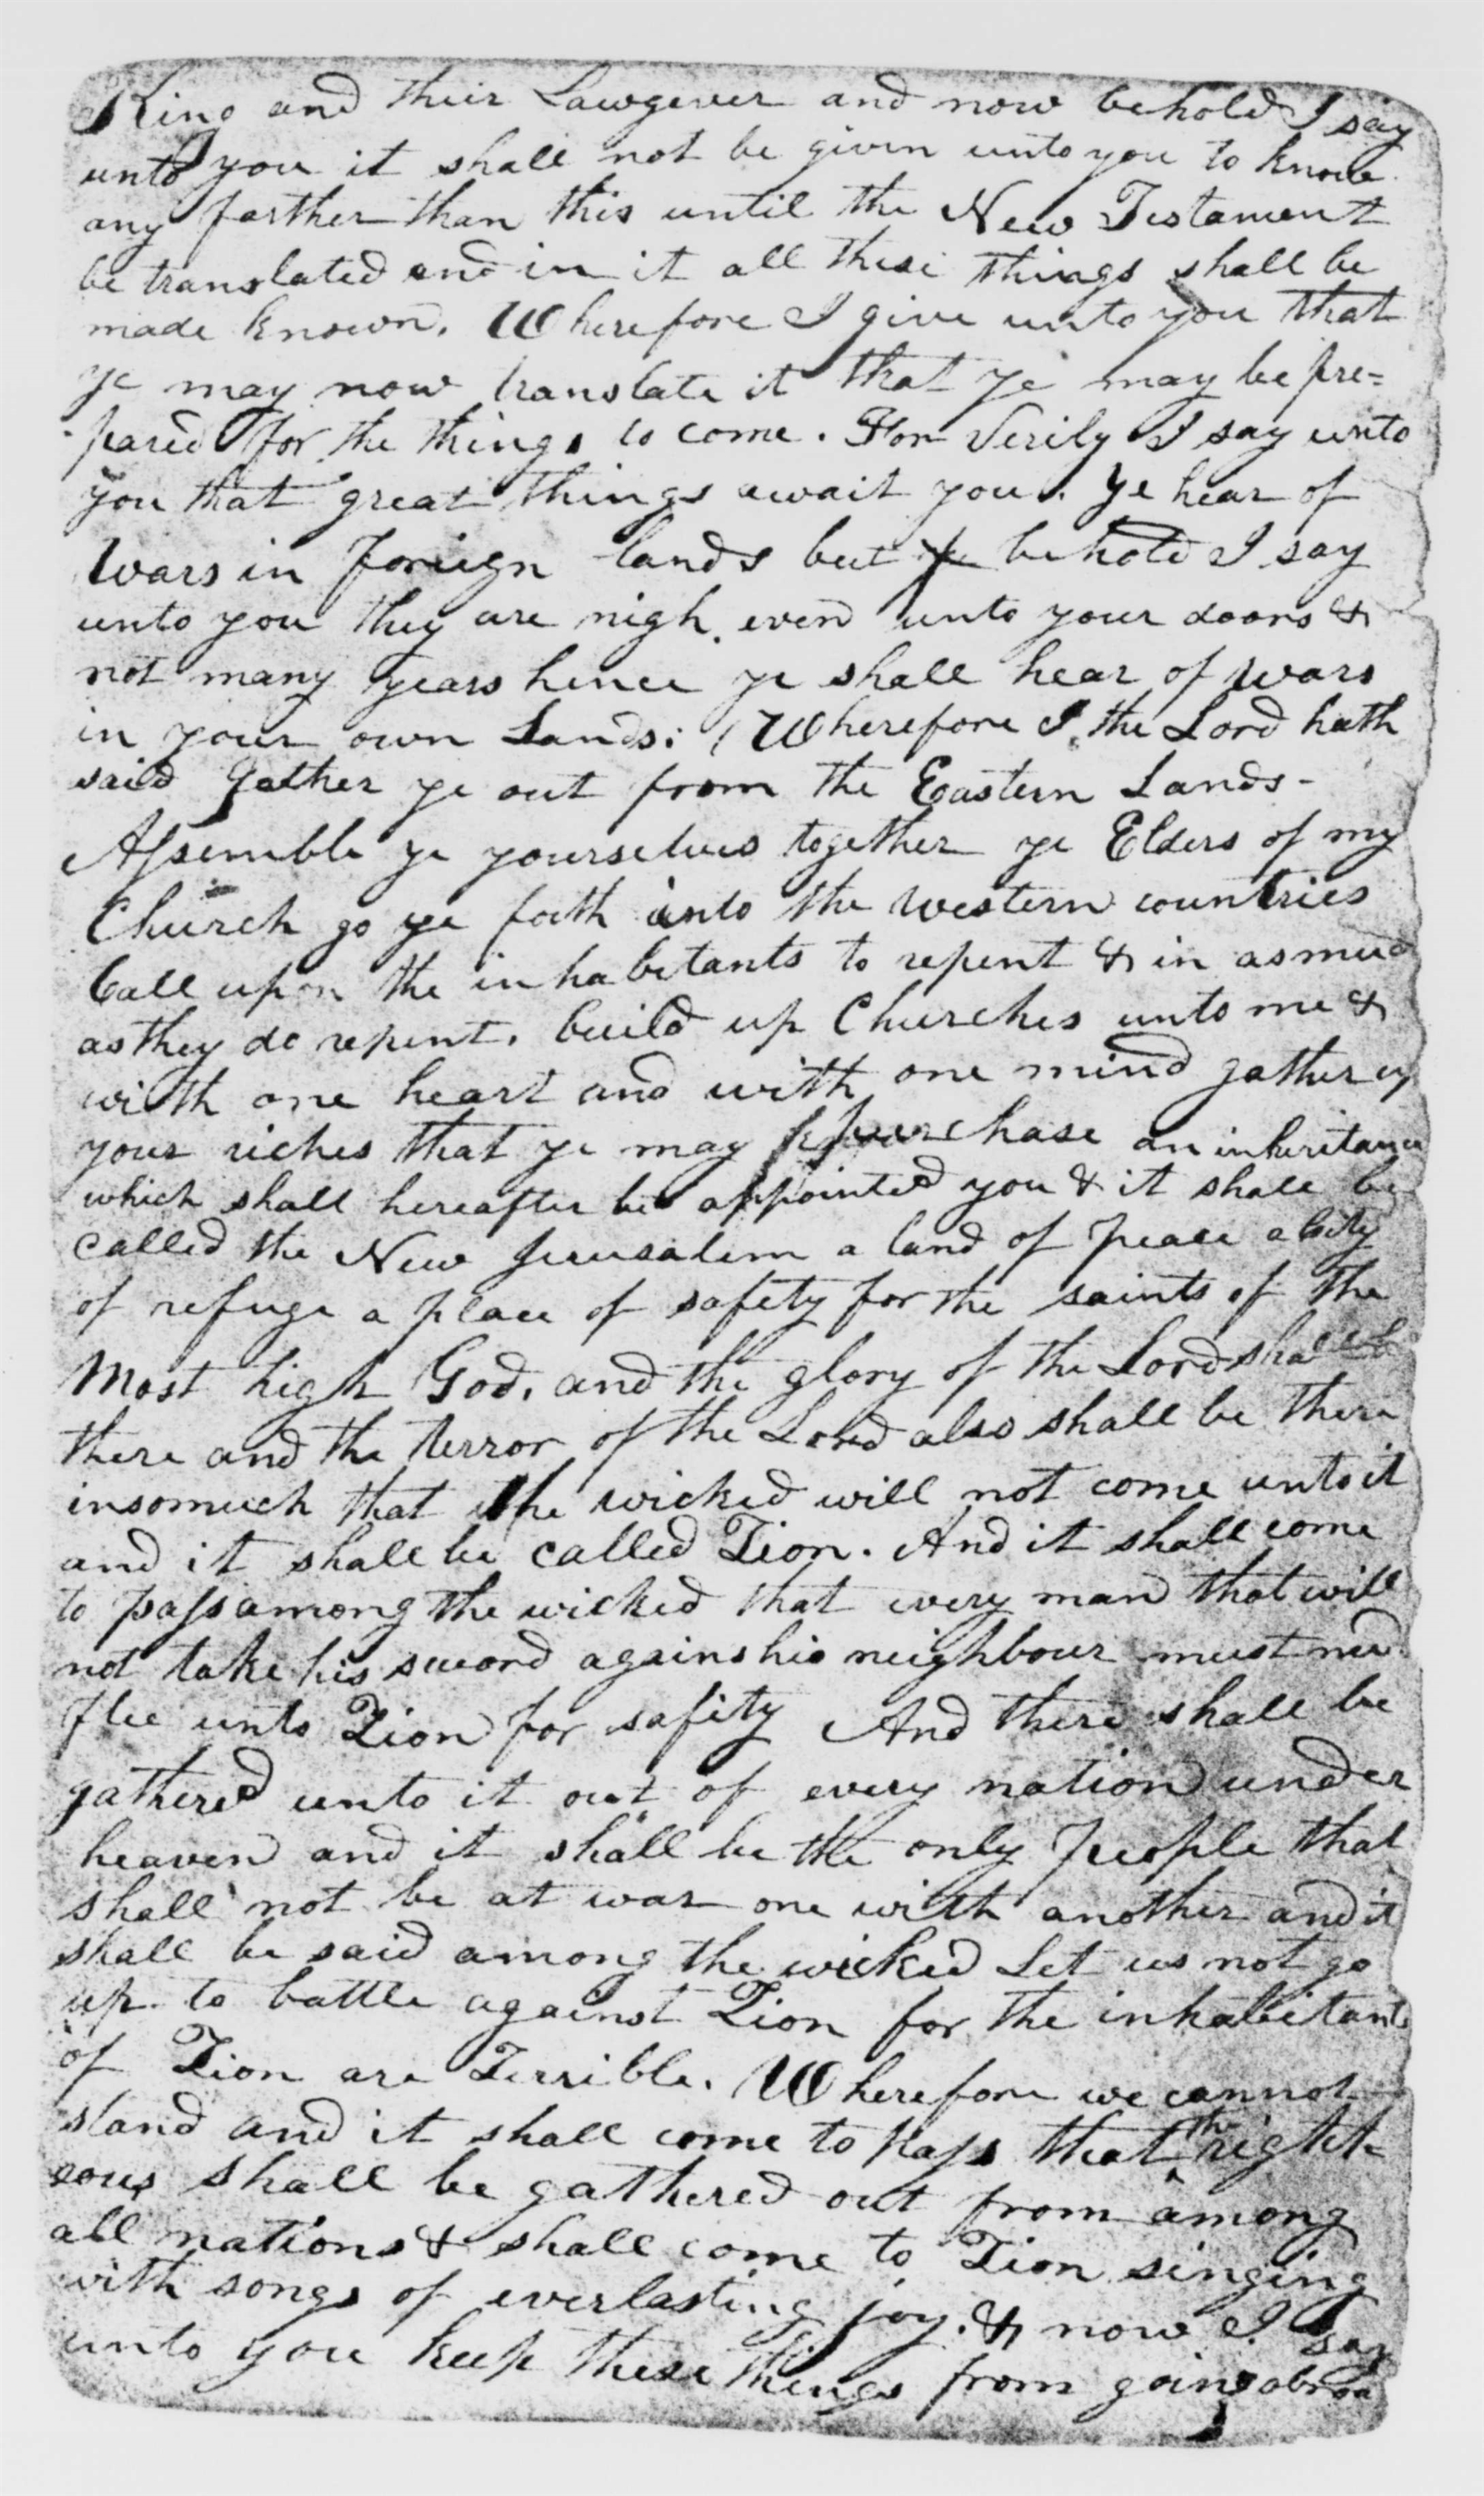 King and their Lawgever and now behold I say
unto you it shall not be given unto you to know
any farther than this until the New Testament
be translated and in it all these things shall be
made known. Wherefore I give unto you that
ye may now translate it that ye may be pre=
pared for the things to come. For Verily I say unto
you that great things await you. Ye hear of
wars in foriegn lands but ye behold I say
unto you they are nigh even unto your doors &
not many years hence ye shall hear of wars
in your own Lands: Wherefore I the Lord hath
said gather ye out from the Eastern Lands-
Assemble ye yourselves together ye Elders of my
Church go ye forth into the western countries
Call upon the inhabitants to repent & in as much
as they do repent. build up Churches unto me &
with one heart and with one mind gather up
your riches that ye may purchase an inheritance
which shall hereafter be appointed you & it shall be
called the New Jerusalem a land of peace a City
of refuge a place of safety for the saints of the
Most high God, and the glory of the Lord shall be
there and the terror of the Lord also shall be there
insomuch that the wicked will not come unto it
and it shall be called Zion. And it shall come
to pass among the wicked that every man that will
not take his sword agains his neighbour must need
flee unto Zion for safity And there shall be
gathered unto it out of every nation under
heaven and it shall be the only people that
shall not be at war one with another and it
shall be said among the wicked Let us not go
up to battle against Zion for the inhabitants
of Zion are Terrible. Wherefore we cannot
stand and it shall come to pass that the right
eous shall be gathered out from among
all nations & shall come to Zion singing
with songs of everlasting joy. & now I say
unto you keep these things from going abroad